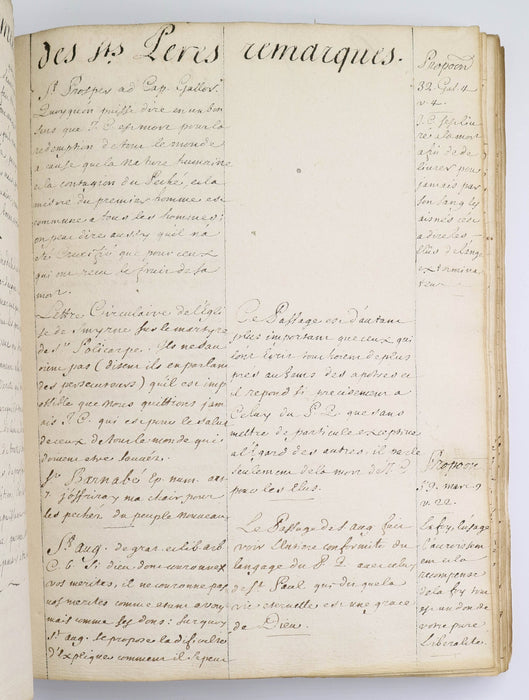 des Sts Peres remarques.
St Prosper ad Cap. Gallor.
Quoyquon puisse dire en un bon
sens que J. C. est mort pour la
redemption de tout le monde
a cause que la nature humaine
et la contagion du Peché et la
misere du premier homme est
commune a tous les hommes;
on peut dire aussy qu'il n'a
été crucifié que pour ceux
qui ont recu le fruit de sa
mort.
Lettre Circulaire de l'Egli
se de Smyrne sur le martyre
de St Policarpe. Ils ne sau
oient pas (disent ils en parlant
des persecuteurs) qu'il est imp
ossible que nous quittions jam
ais J. C. qui est pour le salut
de ceux de tout le monde qui
doivent etre sauvés.
St Barnabé Ep. num.
7 j'offriray ma chair pour
les pechés du peuple nouveau.
St aug. de grat. et lib. arb.
C. 6. Si dieu donc couronne
vos merites, il ne couronne pas
vos merites comme etant a vous
mais comme ses dons. Sur quoy
St aug. se propose la difficulté
d'expliquer comment il se peut
Ce Passage est d'autant
plus important que ceux qui
de plus
pres au tems des apostres et
il repond si precisement a
Celuy du P. Q. que sans
mettre de particule exceptive
a l'égard des autres, il parle
seulement de la mort de J. C.
pour les Elus.
Le Passage de St aug. fait
voir l'entiere conformité du
langage du P. Q. avec celuy
de St Paul qui dit que la
vie eternelle est une grace
de Dieu.
Proposon
32. Gal. 4
v. 4
J. C. s'est liv
ré a la mort
afin de de
livrer pour
jamais par
son sang les
ainés cest
a dire les
Elus de l'ange
extermina
teur.
Propon
v. 22.
La foy, l'usage
l'accroissem
ent et la
recompense
de la foy tout
est un don de
votre pure
Liberalité.